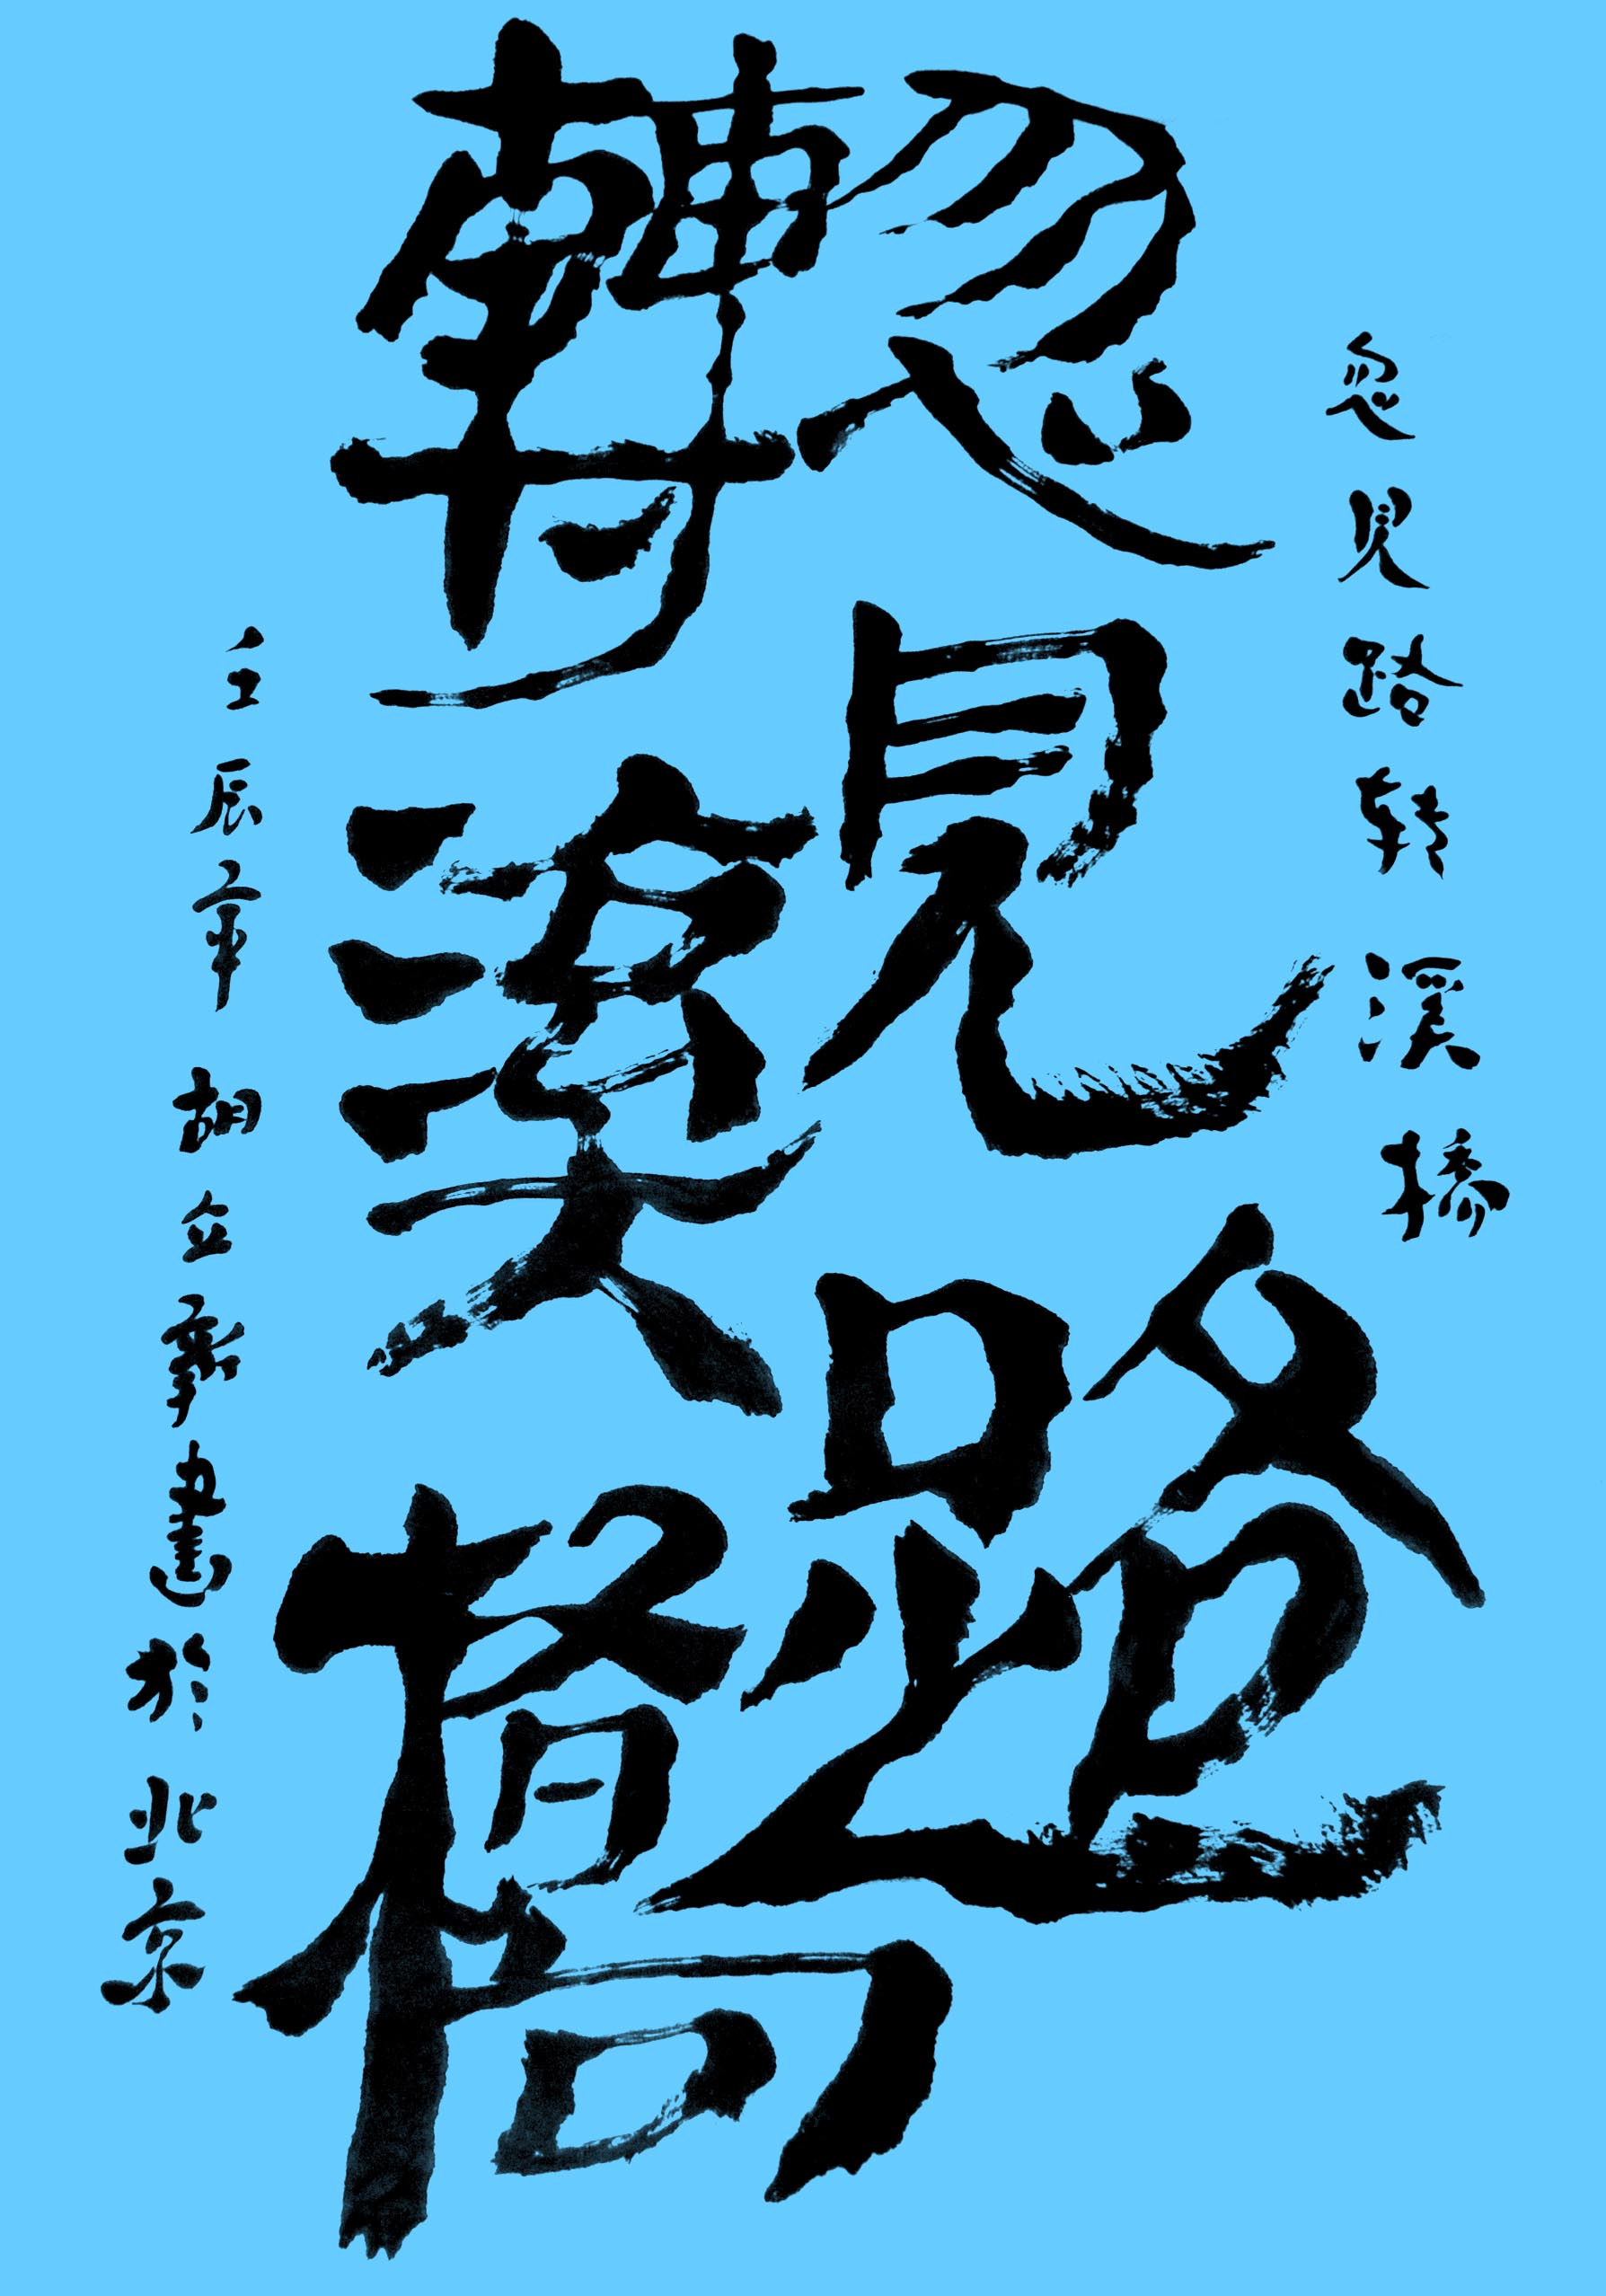 忽見路转溪桥
忽見路
轉溪橋
壬辰年胡立書於北京